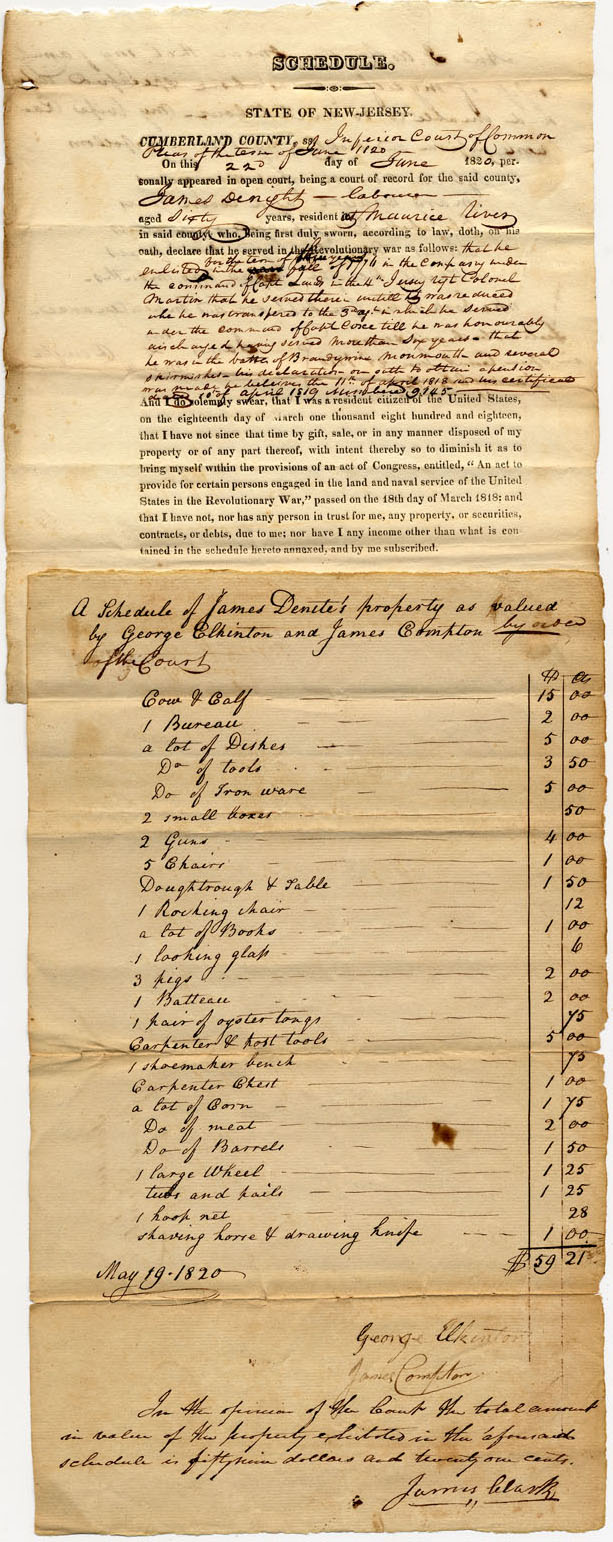 SCHEDULE.
STATE OF NEW-JERSEY.
CUMBERLAND COUNTY, ss. Inferior Court of Common
Pleas of the term of June 1820
On this 22d day of June 1820, per-
sonally appeared in open court, being a court of record for the said county,
James Denight — labourer
aged Sixty years, resident in Maurice River
in said county, who, being first duly sworn, according to law, doth, on his
oath, declare that he served in the Revolutionary war as follows: that he
enlisted for the term of in the fall of in the Company under
the command of Capt in the 4th Jersey regt Colonel
Martin that he served therein untill it was reduced
when he was transpered to the 3d regt in which he served
under the command of Capt till he was honourably
discharged having served more than years - that
he was in the battle of Brandywine Monmouth and several
skirmishes - his declaration on oath to obtain a pension
was made he believes the 11th of april 1818 and his certificate
of april 1819 Numbered 9145
And I do solemnly swear, that I was a resident citizen of the United States,
on the eighteenth day of March one thousand eight hundred and eighteen,
that I have not since that time by gift, sale, or in any manner disposed of my
property or of any part thereof, with intent thereby so to diminish it as to
bring myself within the provisions of an act of Congress, entitled, "An act to
provide for certain persons engaged in the land and naval service of the United
States in the Revolutionary War," passed on the 18th day of March 1818; and
that I have not, nor has any person in trust for me, any property, or securities,
contracts, or debts, due to me; nor have I any income other than what is con-
tained in the schedule hereto annexed, and by me subscribed.
A Schedule of James Denite's property as valued
by George Elkinton and James Compton by order
of the Court
$ Cts
Cow & Calf 15 00
1 Bureau 2 00
a lot of Dishes 5 00
Do of tools 3 50
Do of Iron ware 5 00
2 small boxes 50
2 Guns 4 00
5 Chairs 1 00
Doughtrough & Table 1 50
1 Rocking chair 12
a lot of Books 1 00
1 looking glass 6
3 pigs 2 00
1 Batteau 2 00
1 pair of oyster tongs 75
Carpenter & post tools 5 00
1 shoemaker bench 75
Carpenter Chest 1 00
a lot of Corn 1 75
Do of meat 2 00
Do of Barrels 1 50
1 large Wheel 1 25
tubs and pails 1 25
1 hoop net 28
shaving horse & drawing knife 1 00
May 19 - 1820 $ 59 21
George Elkinton
James Compton
In the opinion of the Court the total amount
in value of the property exhibited in the aforesaid
schedule is fifty nine dollars and twenty one cents.
James Clark